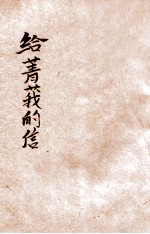 给菁莪的信